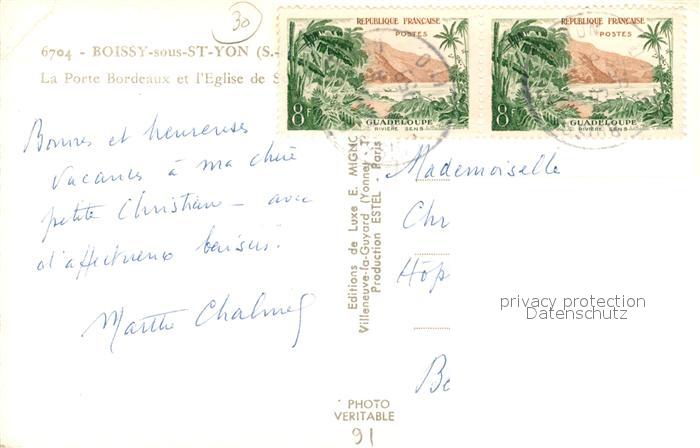 30
6704 - BOISSY-sous-ST-YON (S.-
La Porte Bordeaux et l'Eglise de S
REPUBLIQUE FRANÇAISE
POSTES
8F
GUADELOUPE
RIVIÈRE SENS
REPUBLIQUE FRANÇAISE
POSTES
8F
GUADELOUPE
RIVIÈRE SENS
Bonnes et heureuses
vacances à ma chère
petite Christiane - avec
d'affectueux baisers.
Marthe
Editions de Luxe E. MIGNO
Villeneuve-la-Guyard (Yonne)
Production ESTEL Paris
Mademoiselle
Chr
Hôp
Be
privacy protection
Datenschutz
PHOTO
VERITABLE
91